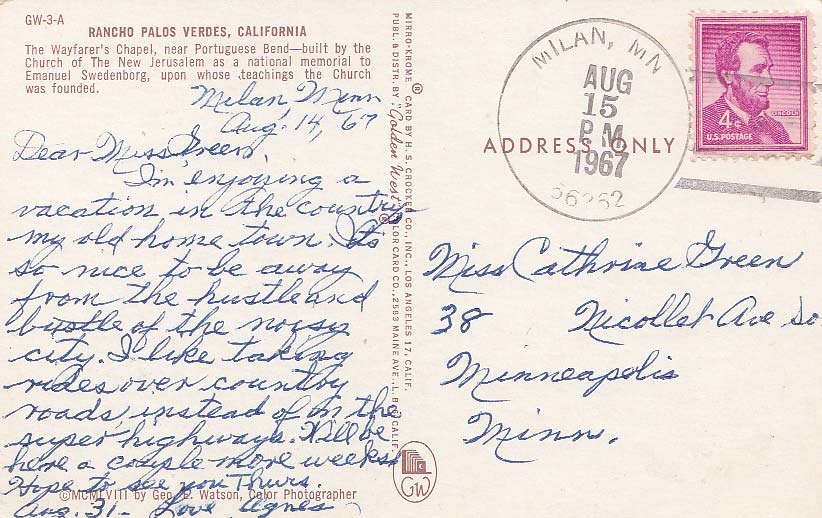 GW-3-A
RANCHO PALOS VERDES, CALIFORNIA
The Wayfarer's Chapel, near Portuguese Bend—built by the
Church of The New Jerusalem as a national memorial to
Emanuel Swedenborg, upon whose teachings the Church
was founded.
Milan, Minn
Aug. 14, 67
Dear Miss Green,
I'm enjoying a
vacation in the country
my old home town. Its
so nice to be away
from the hustle and
bustle of the noisy
city. I like taking
rides over country
roads, instead of on the
super highways. Will be
here a couple more weeks.
Hope to see you Thurs.
Aug. 31- Love Agnes
©MCMLVIII by Geo. E. Watson, Color Photographer
MIRRO-KROME® CARD BY H. S. CROCKER CO., INC., LOS ANGELES 17, CALIF.
PUBL. & DISTR. BY "Golden West"® COLOR CARD CO., 2583 MAINE AVE., L. B. CALIF.
GW
MILAN, MN
AUG
15
PM
1967
56262
4¢
LINCOLN
U.S. POSTAGE
ADDRESS ONLY
Miss Cathrine Green
38 Nicollet Ave So
Minneapolis
Minn.